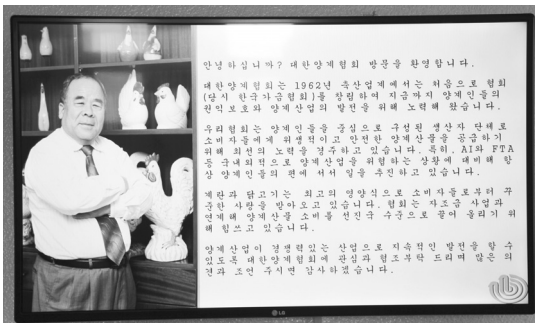 안녕하십니까? 대한양계협회 방문을 환영합니다.
대한양계협회는 1962년 축산업계에서는 처음으로 협회
(당시 한국가금협회)를 창립하여 지금까지 양계인들의
권익보호와 양계산업의 발전을 위해 노력해 왔습니다.
우리협회는 양계인들을 중심으로 구성된 생산자 단체로
소비자들에게 위생적이고 안전한 양계산물을 공급하기
위해 최선의 노력을 경주하고 있습니다. 특히, AI와 FTA
등 국내외적으로 양계산업을 위협하는 상황에 대비해 항
상 양계인들의 편에 서서 일을 추진하고 있습니다.
계란과 닭고기는 최고의 영양식으로 소비자들로부터 꾸
준한 사랑을 받아오고 있습니다. 협회는 자조금 사업과
연계해 양계산물 소비를 선진국 수준으로 끌어 올리기 위
해 힘쓰고 있습니다.
양계산업이 경쟁력있는 산업으로 지속적인 발전을 할 수
있도록 대한양계협회에 관심과 협조부탁 드리며 많은 의
견과 조언 주시면 감사하겠습니다.
LG